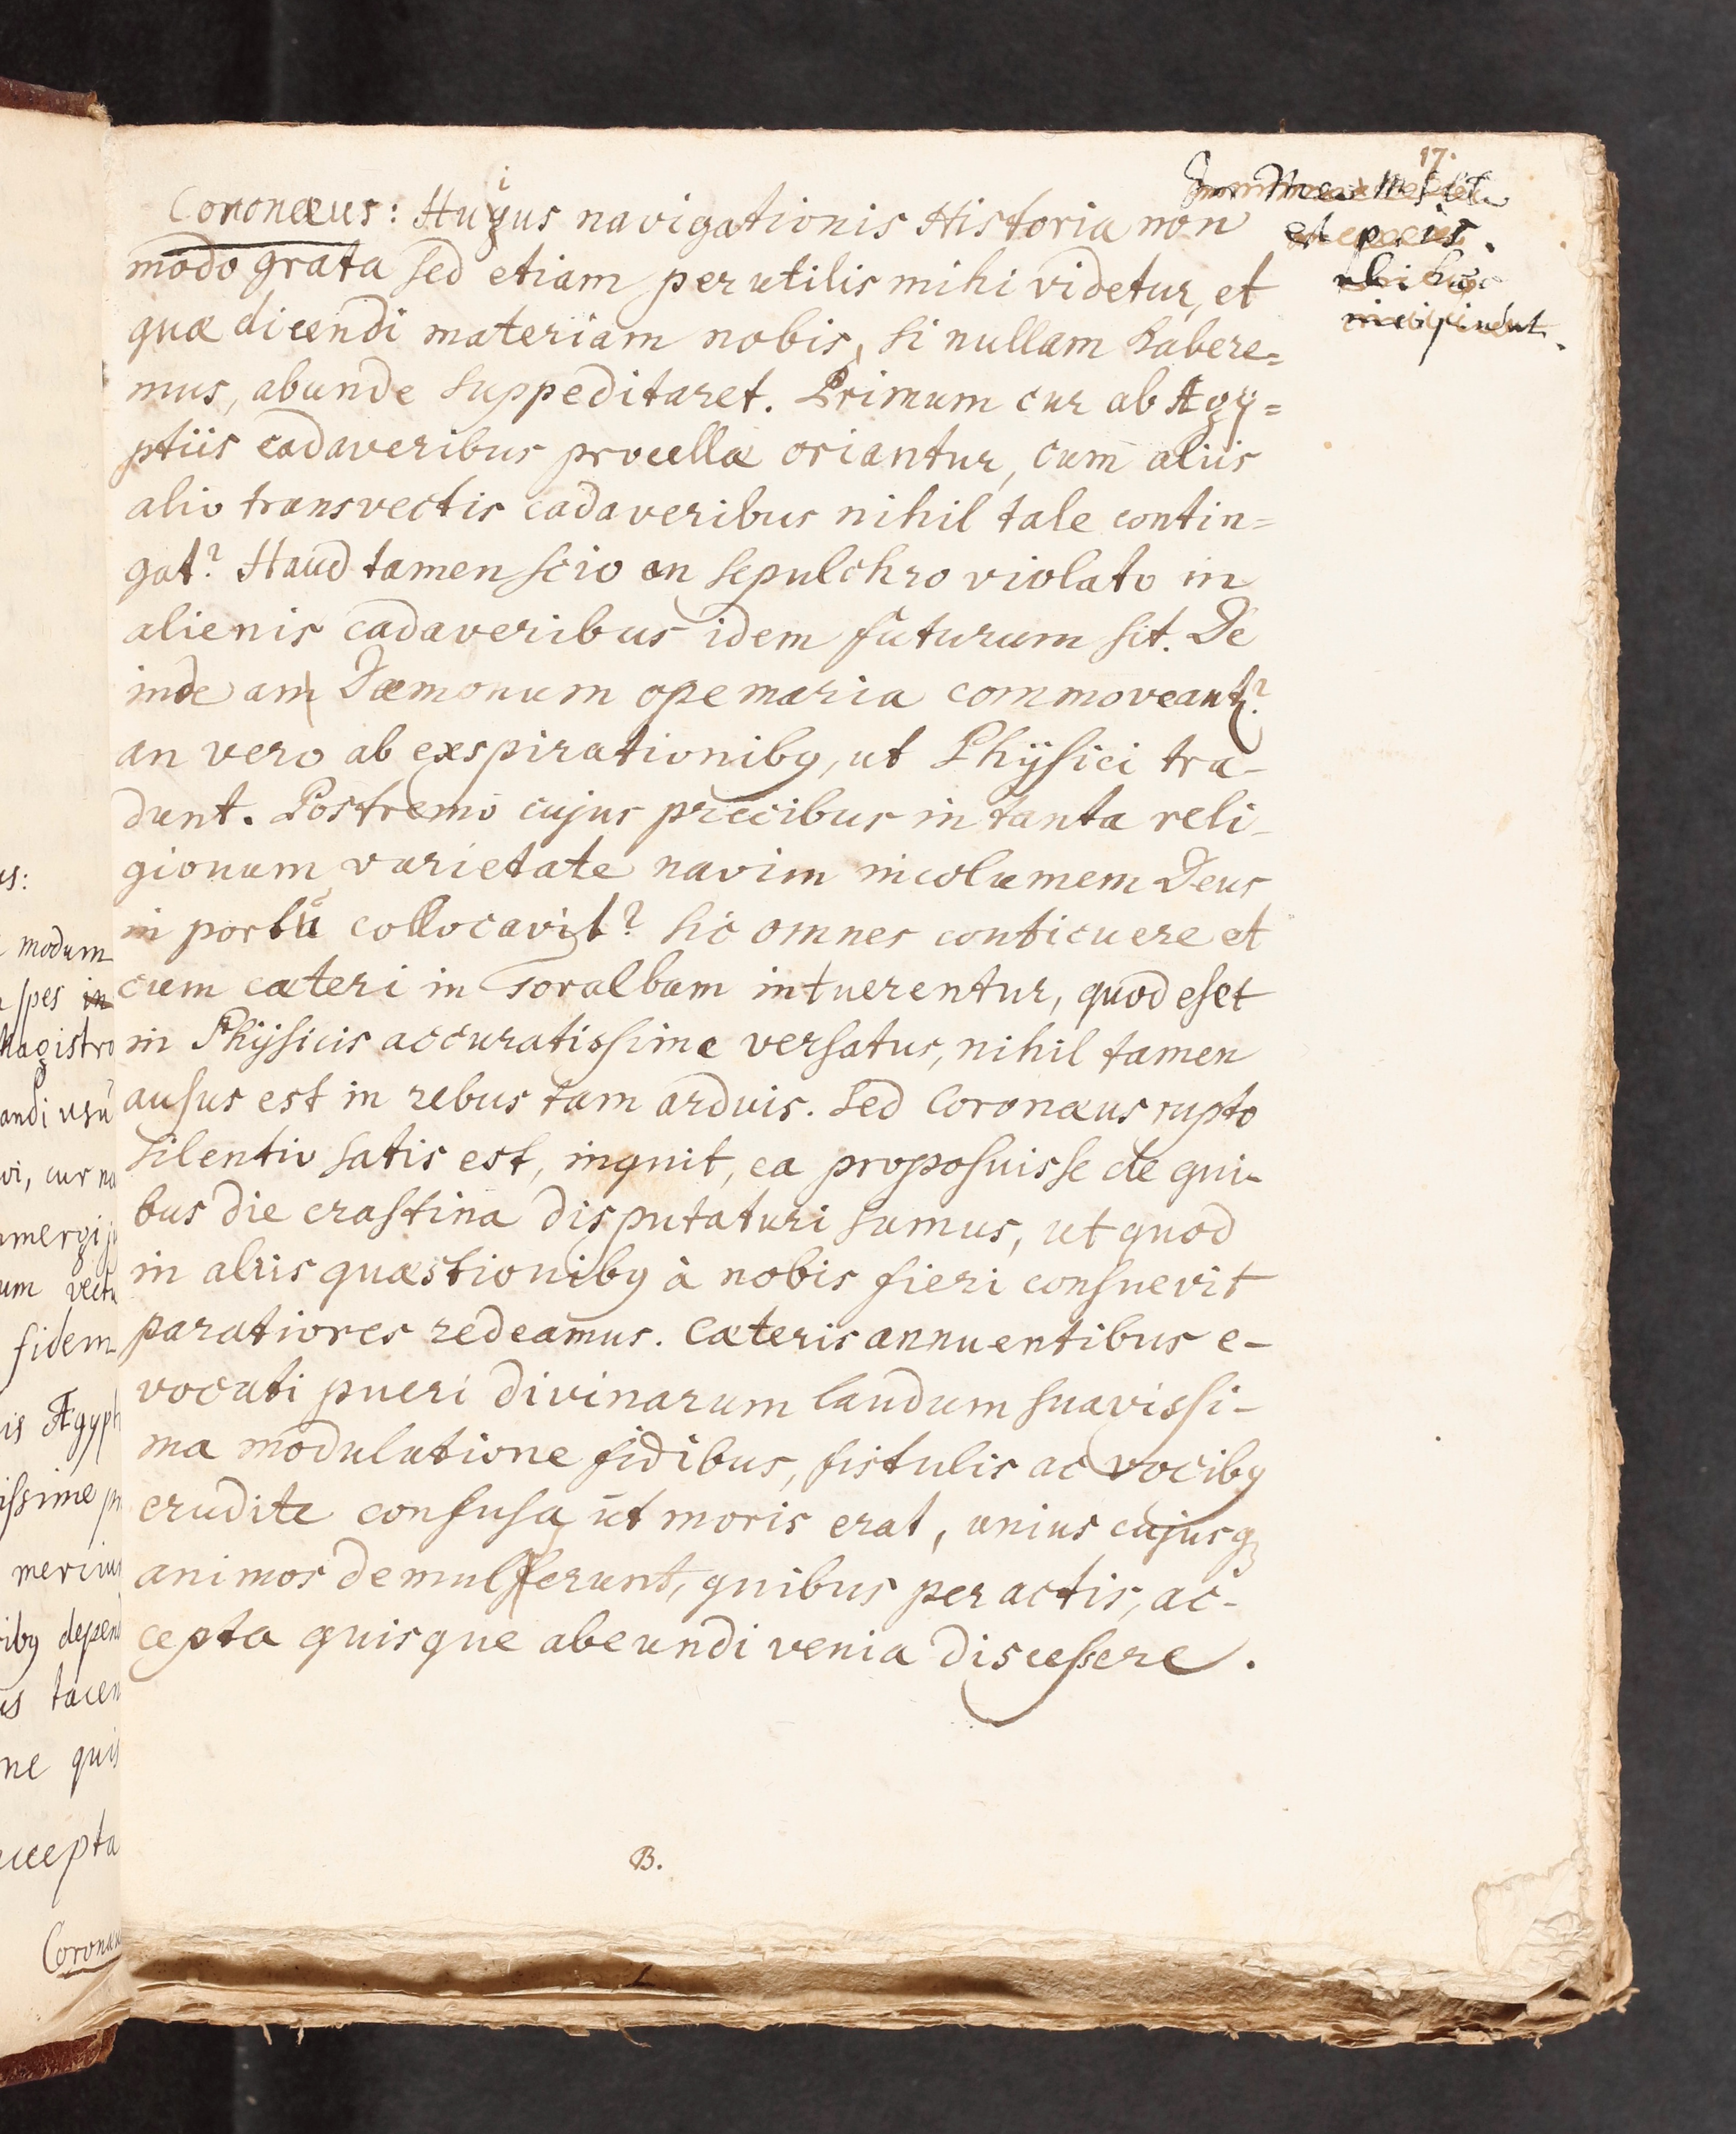 17.
Coronæus: Hujus navigationis Historia non
modo grata sed etiam perutilis mihi videtur, et
quæ dicendi materiam nobis, si nullam habere=
mus, abunde suppeditaret. Primum cur ab Ægÿ=
ptiis cadaveribus procellæ oriantur, cum aliis
alio transvectis cadaveribus nihil tale contin=
gat? Haud tamen scio an sepulchro violato in
alienis cadaveribus idem futurum sit. De
inde an Dæmonum ope maria commoveantr?
an vero ab exspirationibꝯ, ut Phÿsici tra-
dunt. Postremo cujus precibus in tanta reli-
gionum varietate navim incolumem Deus
in portū collocavit? hic omnes conticuere et
cum cæteri in Toralbam intuerentur, quod esset
in Phÿsicis accuratissime versatus, nihil tamen
ausus est in rebus tam arduis. Sed Coronæus rupto
silentio satis est, inquit, ea proposuisse de qui-
bus die crastina disputaturi sumus, ut quod
in aliis quæstionibꝯ à nobis fieri consuevit
paratiores redeamus. Cæteris annuentibus e-
vocati pueri divinarum laudum suavissi-
ma modulatione fidibus, fistulis ac vocibꝯ
erudite confusa ut moris erat, unius cujusqꝫ
animos demulserunt, quibus peractis, ac-
cepta quisque abeundi venia discessere.
B.
us:
modum
spes in
Magistro
andi usū
vi, cur na
fidem
is Ægypt
issime
ibꝯ depend
tacen
ne quis
accepta
Coronæu